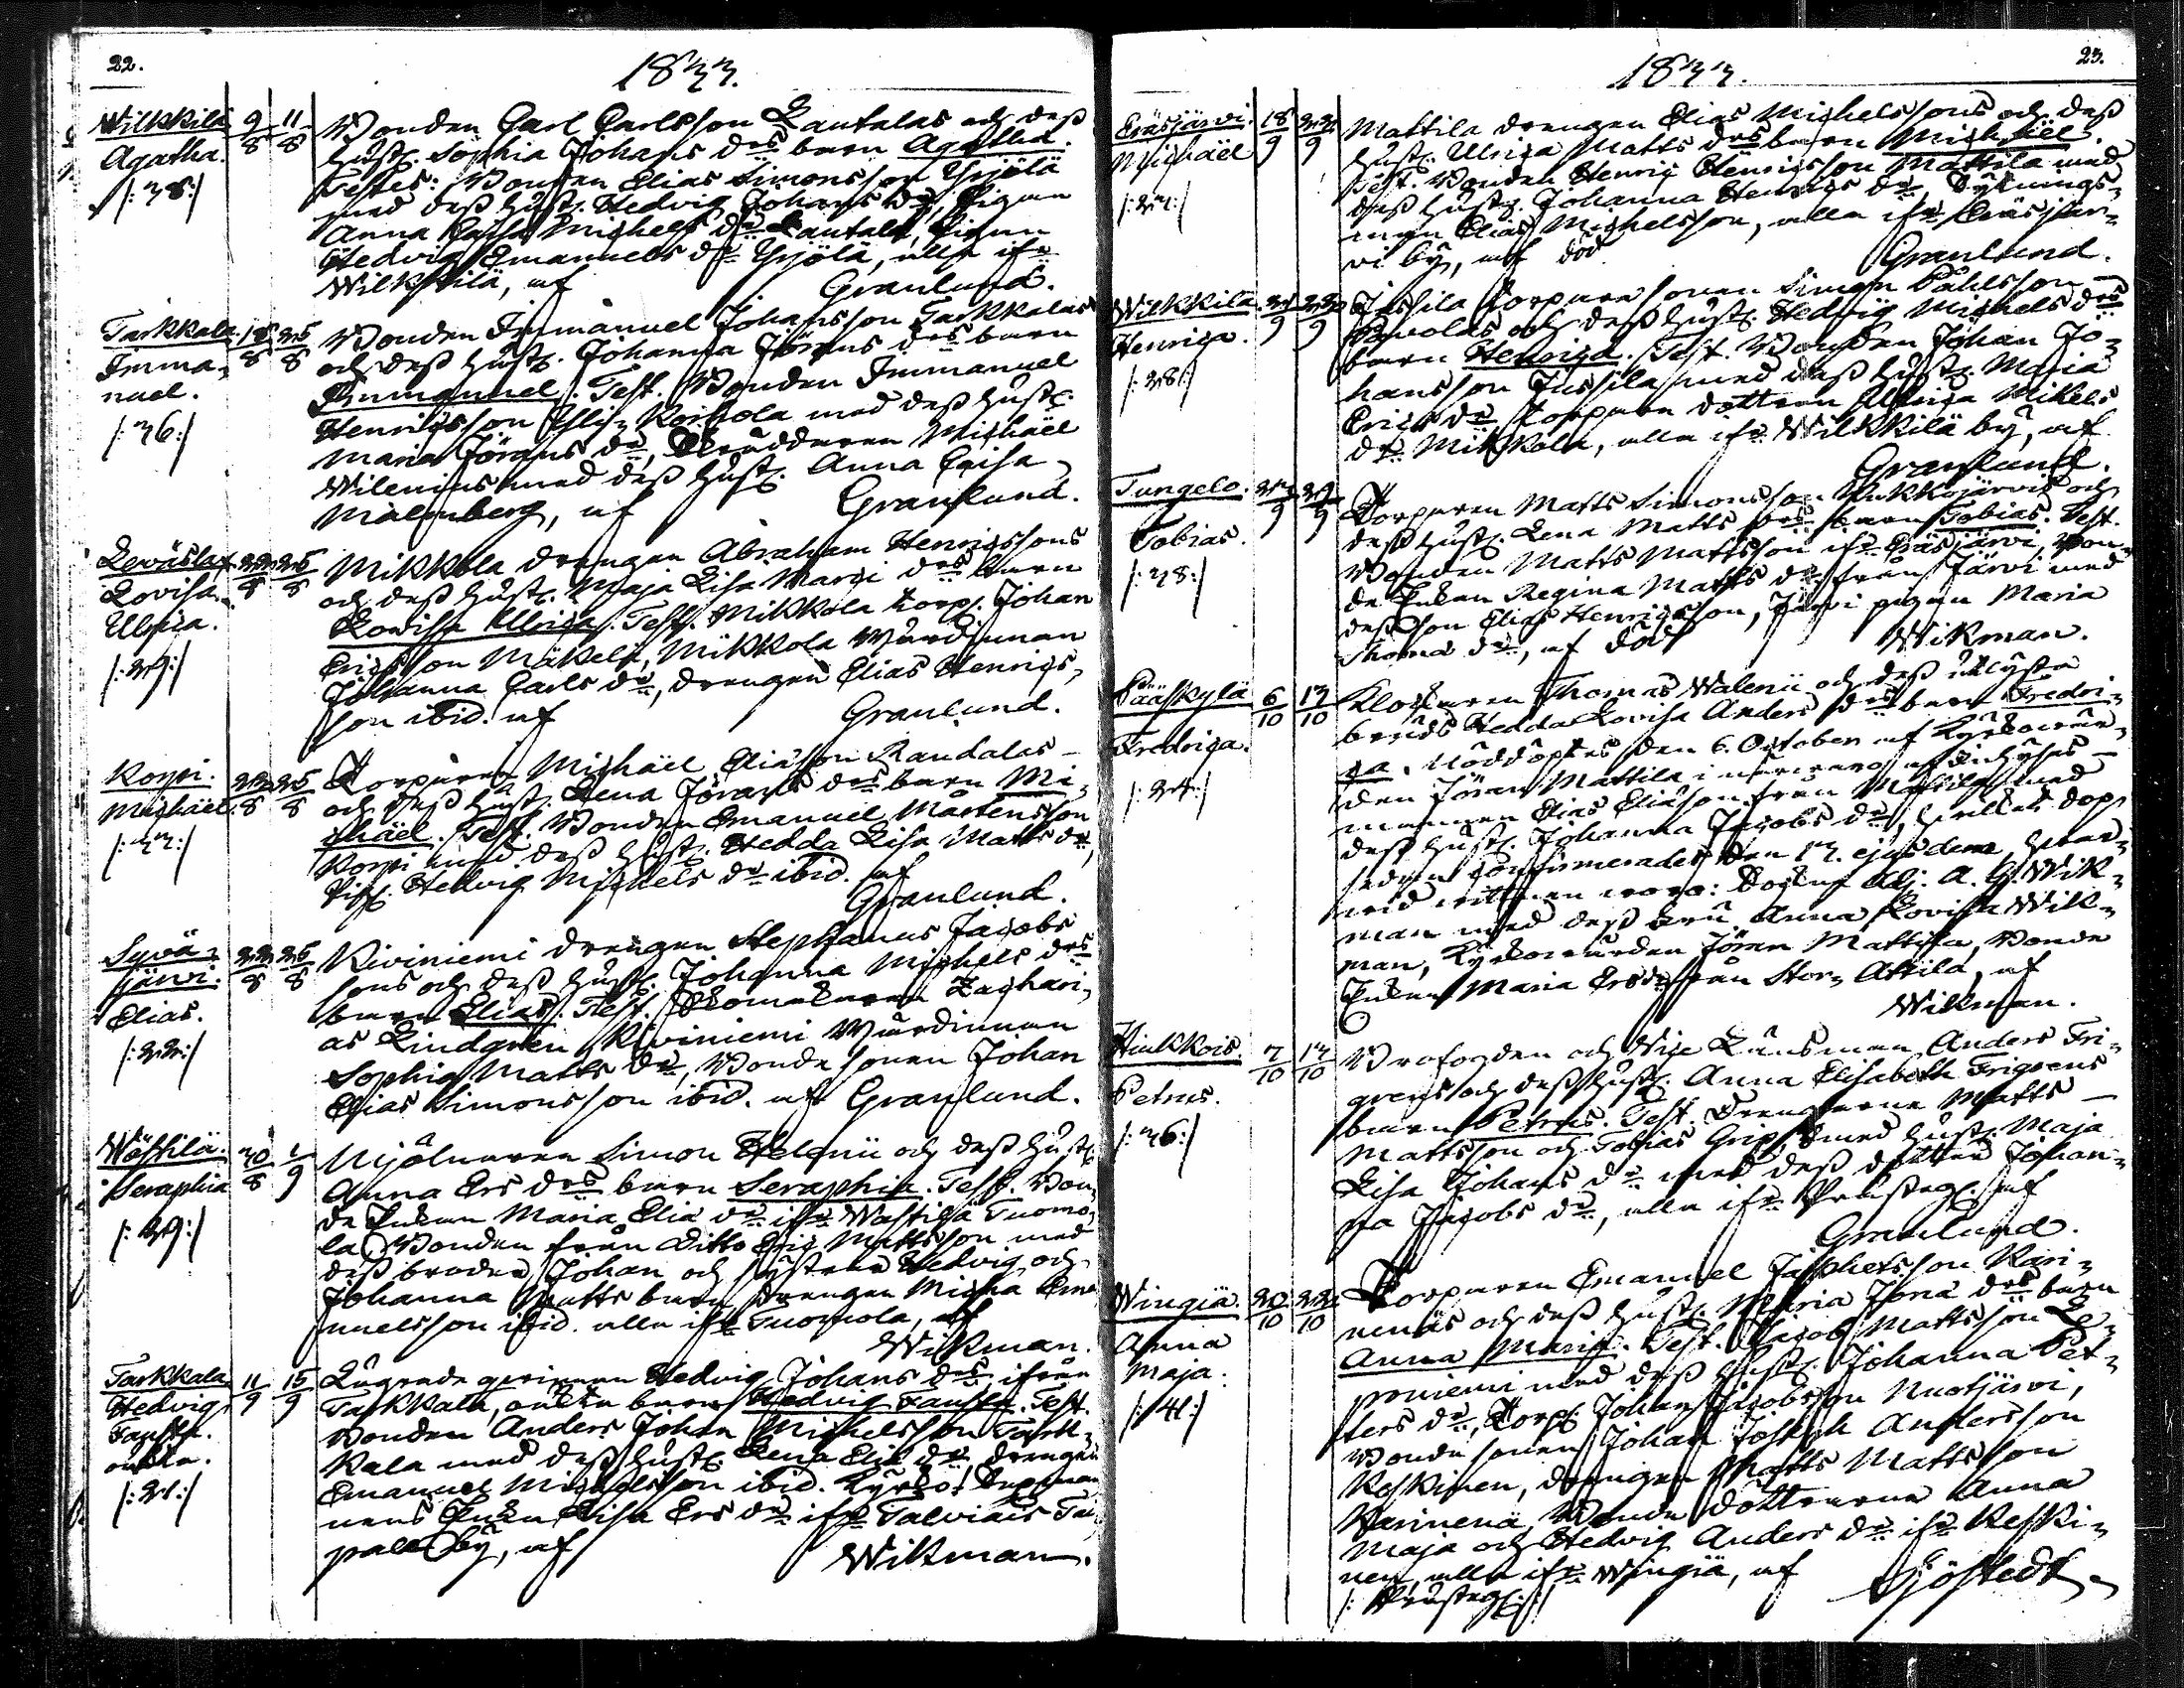 22.
1833.
Wilkkilä
Agatha.
/:38:/
9/8 11/8
Bonden Carl Carlsson Lautalas och dess
hust. Sophia Johans drs barn Agatha.
Testes: Bonden Elias Simonsson Yrjölä
med dess hust. Hedvig Johans dr, Pigan
Anna Caisa Michels dr Lautala, Pigan
Hedvig Emanuels dr Yrjölä, alla ifr.
Wilkkilä, af Granlund.
Tarkkala
Imma-
nuel.
/:36:/
18/8 25/8
Bonden Immanuel Johansson Tarkkalas
och dess hust. Johanna Jörans drs barn
Immanuel. Test. Bonden Immanuel
Henricsson Yli-Korhola med dess hust.
Maria Jörans dr, Skräddaren Michaël
Wilenius med dess hust. Anna Caisa
Malmberg, af Granlund.
Leväslax
Lovisa
Ulrica.
/:29:/
22/8 25/8
Mikkola drengen Abraham Henricssons
och dess hust. Maja Lisa Marci drs barn
Lovisa Ulrica. Test. Mikkola torp. Johan
Ericsson Mäkelä, Mikkola Wärdinnan
Johanna Carls dr, drengen Elias Henrics-
son ibid. af Granlund.
Korpi.
Michaël.
/:33:/
22/8 25/8
Torparen Michaël Eliasson Randalas
och dess hust. Lena Jörans drs barn Mi-
chaël. Test. Bonden Emanuel Mårtensson
Korpi med dess hust. Hedda Lisa Matts dr,
Pig. Hedvig Michels dr ibid. af
Granlund.
Syvä-
järvi.
Elias.
/:22:/
22/8 25/8
Kiviniemi drengen Stephanus Jacobs
sons och dess hust. Johanna Michels drs
barn Elias. Test. Skomakaren Zachari-
as Lindgren, Kiviniemi Wärdinnan
Sophia Matts dr, Bonde sonen Johan
Elias Simonsson ibid. af Granlund.
Wästilä.
Seraphia
/:29:/
30/8 1/9
Mjölnaren Simon Helenii och dess hust.
Anna Ers drs barn Seraphia. Test. Bon-
de Enkan Maria Elia dr ifr. Wästilä Tuomo-
la, Bonden från Ditto Eric Mattsson med
dess broder Johan och systrar Hedvig och
Johanna Matts barn, drengen Micha Ema-
nuelsson ibid. alla ifr. Tuomola, af
Wikman.
Tarkkala
Hedvig
Fausta.
oäkta.
/:21:/
11/9 15/9
Lägrade qvinnan Hedvig Johans drs ifrån
Tarkkala, oäkta barn Hedvig Fausta. Test.
Bonden Anders Johan Michelsson Tark-
kala med dess hust. Lena Elia dr, drengen
Emanuel Michelsson ibid. Kyrko
nens Enka Lisa Ers dr ifr. Talviais
pale by, af Wikman.
23.
1833.
Eräsjärvi.
Michaël
/:23:/
18/9 22/9
Mattila drengen Elias Michelssons och dess
hust. Ulrica Matts drs barn Michaël.
Test. Bonden Henric Henricsson Mattila med
dess hust. Johanna Henrics dr, Dyknings-
man Elias Michelsson, alla ifr. Eräsjär-
vi by, af död Granlund.
Wilkkilä
Henrica.
/:28:/
21/9 22/9
Jussila torpare sonen Simon Påhlsson
Pavolas och dess hust. Hedvig Michels drs
barn Henrica. Test. Bonden Johan Jo-
hansson Jussila med dess hust. Maria
Erics dr, torpare dottren Ulrica Mikels
dr Mikkola, alla ifr. Wilkkilä by, af
Granlund.
Tungelo.
Tobias.
/:38:/
23/9 29/9
Torparen Matts Simonsson Kukkojärvis och
dess hust. Lena Matts drs barn Tobias. Test.
Bonden Matts Mattsson ifr. Eräsjärvi, Bon-
de Enkan Regina Matts dr från Järvi med
dess son Elias Henricsson, Järvi pigan Maria
Thoma dr, af död Wikman.
Pääskylä
Fredrica.
/:24:/
6/10 13/10
Klockaren Thomas Walenii och dess utlysta
bruds Hedda Lovisa Anders drs barn Fredri-
ca. Nöddöptes den 6. October af Kyrkovär-
den Jöran Mattila i närvaro af Inhyses
mannen Elias Eliasson från Mattila med
dess hust. Johanna Jacobs dr, hvilket dop
sedan confirmerades den 13. ejusdem, hvar-
vid vittnen voro: Adj. A. G. Wik-
man med dess fru Anna Lovisa Wik-
man, Kyrkovärden Jöran Mattila, Bonde
Enkan Maria Ers dr från Stor-Attila, af
Wikman.
Hiukkois.
Petrus.
/:36:/
7/10 13/10
Brofogden och Vice Länsman Anders Fri-
grens och dess hust. Anna Elisabeth Frigrens
barn Petrus. Test. Drengarne Matts
Mattsson och Tobias Grip med hust. Maja
Lisa Johans dr med dess dotter Johan-
na Jacobs dr, alla ifr. Prusteg. af
Granlund.
Wingiä.
Anna
Maja.
/:41:/
20/10 22/10
Torparen Emanuel Japhetsson Kari-
nenäs och dess hust. Maria Jona drs barn
Anna Maria. Test. Jacob Mattsson Le-
poniemi med dess hust. Johanna Pet-
ters dr, Torp. Johan Jacobsson Nuotjärvi,
Bonde sonen Johan Joseph Andersson
Keskinen, drengen Matts Mattsson
Karinenä, Bonde döttrarna Anna
Maja och Hedvig Anders dr ifr. Keski-
nen, alla ifr. Wingiä, af Sjöstedt.
/: Prusteg. :/